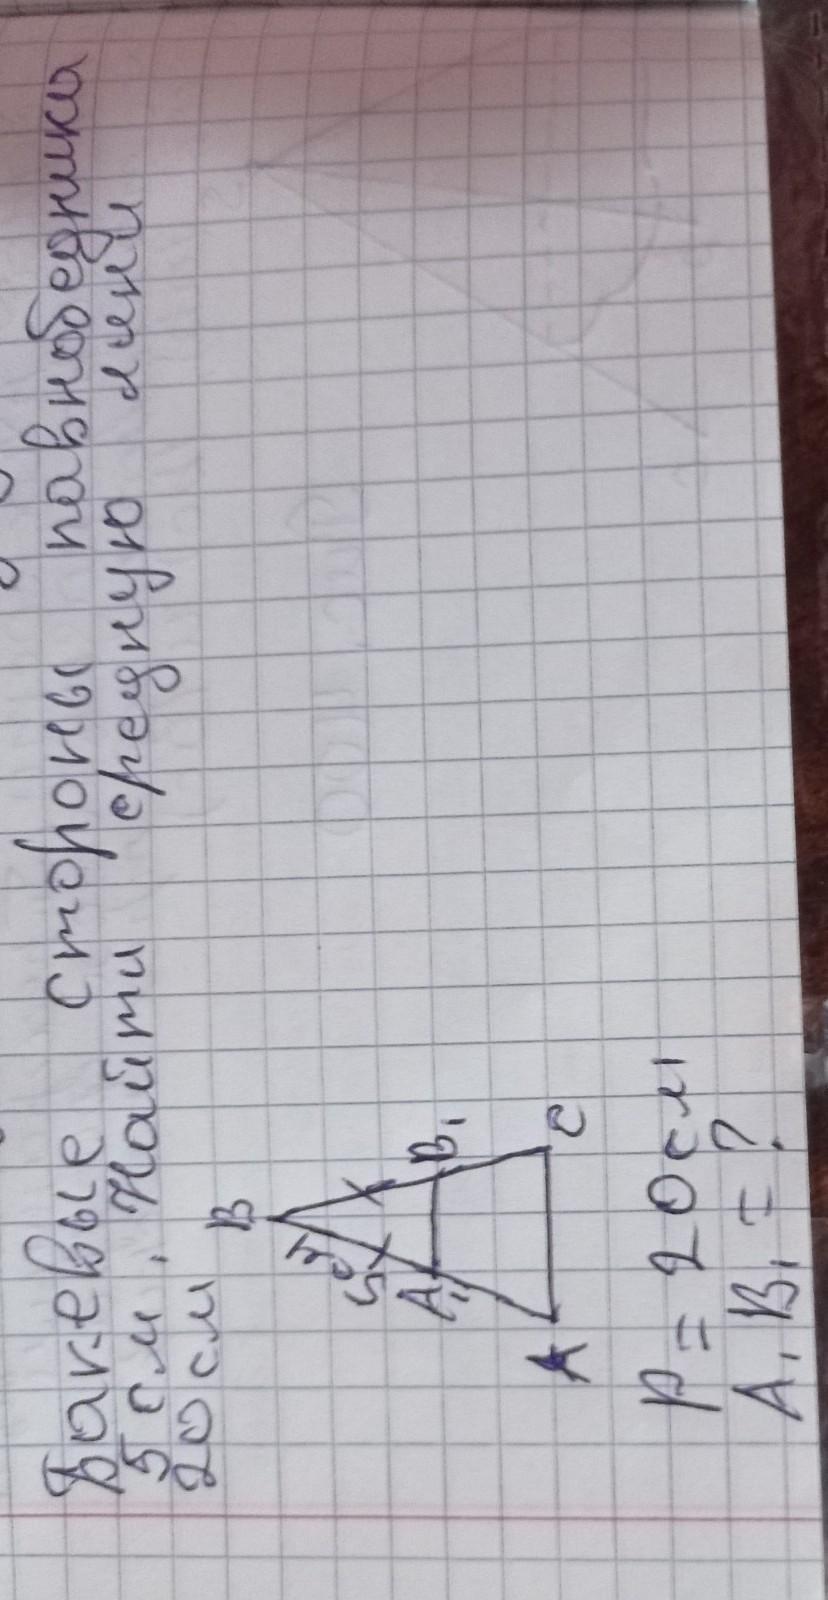 Бакевые стороны павнобедники
5 см. Найти средную лини
20 см
B
5 см
A₁
B₁
A
C
P = 20 см
A₁B₁ = ?